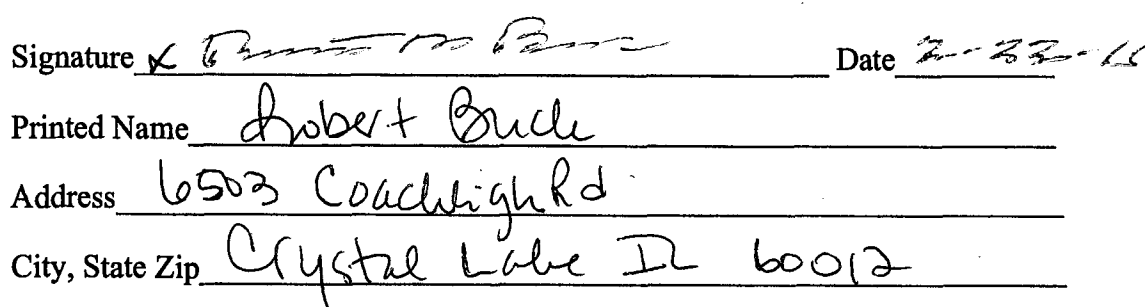 Signature x Date 2-22-
Printed Name Robert Buck
Address 6503 Rd
City, State Zip Crystal Lake IL 60012